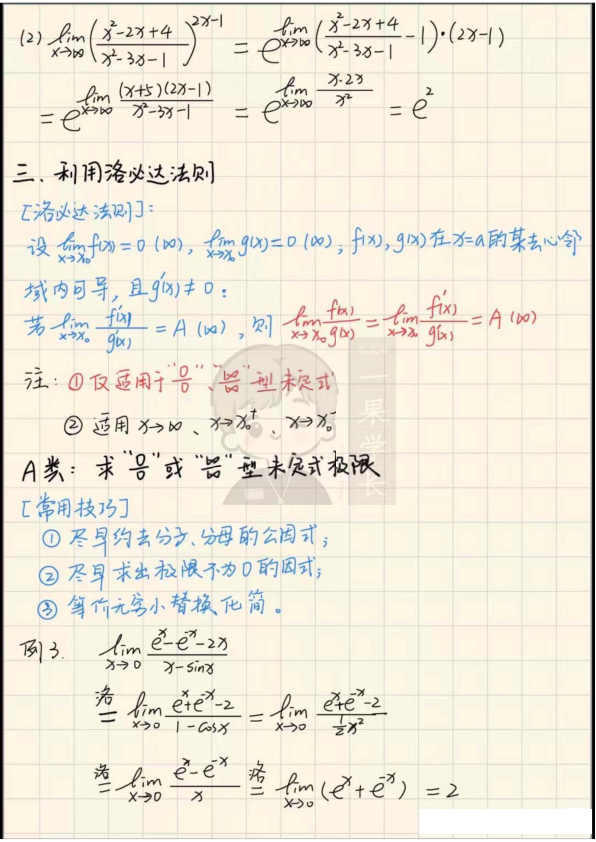 (2) lim x→∞ ((x²-2x+4)/(x²-3x-1))^(2x-1) = e^(lim x→∞ ((x²-2x+4)/(x²-3x-1) - 1)·(2x-1))
= e^(lim x→∞ (x+5)(2x-1)/(x²-3x-1)) = e^(lim x→∞ x·2x/x²) = e²
三、利用洛必达法则
[洛必达法则]:
设 lim x→x₀ f(x)=0 (∞), lim x→x₀ g(x)=0 (∞); f(x), g(x) 在 x=a 的某去心邻
域内可导, 且 g'(x)≠0:
若 lim x→x₀ f'(x)/g'(x) = A (∞), 则 lim x→x₀ f(x)/g(x) = lim x→x₀ f'(x)/g'(x) = A (∞)
注: ① 仅适用于 "0/0"、"∞/∞" 型未定式
② 适用 x→∞、x→x₀⁺、x→x₀⁻
A类: 求 "0/0" 或 "∞/∞" 型未定式极限
[常用技巧]
① 尽早约去分子、分母的公因式;
② 尽早求出极限不为0的因式;
③ 等价无穷小替换化简。
例3. lim x→0 (eˣ-e⁻ˣ-2x)/(x-sinx)
洛= lim x→0 (eˣ+e⁻ˣ-2)/(1-cosx) = lim x→0 (eˣ+e⁻ˣ-2)/(½x²)
洛= lim x→0 (eˣ-e⁻ˣ)/x 洛= lim x→0 (eˣ+e⁻ˣ) = 2
一果学长